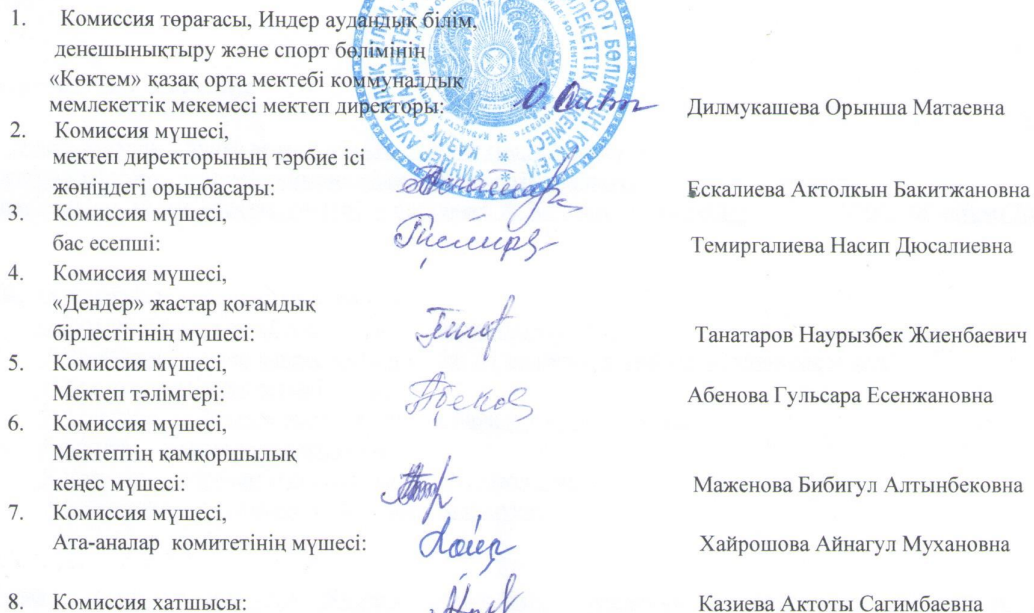 1. Комиссия төрағасы, Индер аудандық білім,
денешынықтыру және спорт бөлімінің
«Көктем» қазақ орта мектебі коммуналдық
мемлекеттік мекемесі мектеп директоры: Дилмукашева Орынша Матаевна
2. Комиссия мүшесі,
мектеп директорының тәрбие ісі
жөніндегі орынбасары: Ескалиева Актолкын Бакитжановна
3. Комиссия мүшесі,
бас есепші: Темиргалиева Насип Дюсалиевна
4. Комиссия мүшесі,
«Дендер» жастар қоғамдық
бірлестігінің мүшесі: Танатаров Наурызбек Жиенбаевич
5. Комиссия мүшесі,
Мектеп тәлімгері: Абенова Гульсара Есенжановна
6. Комиссия мүшесі,
Мектептің қамқоршылық
кеңес мүшесі: Маженова Бибигул Алтынбековна
7. Комиссия мүшесі,
Ата-аналар комитетінің мүшесі: Хайрошова Айнагул Мухановна
8. Комиссия хатшысы: Казиева Актоты Сагимбаевна